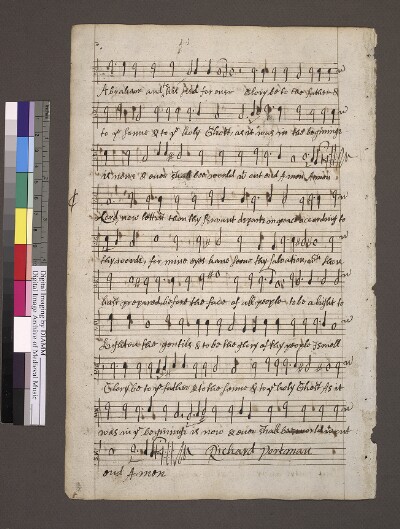 Abraham and his seed for ever Glory be to the father &
to ye sonne & to ye holy Ghost: as it was in the beginninge
is nowe & ever shall bee world wt out end Amen Amen
Lord now lettest thou thy servant depart in peace according to
thy worde, for mine eyes have seene thy salvation, wch thou
hast prepared before the face of all people to be a light to
Lighten the gentils & to be the glory of thy people Israell
Glory be to ye father & to the sonne & to ye holy Ghost As it
was in ye beginninge is now & ever shall be world wt out
Richard Portman
end Amen
Digital Imaging by DIAMM
Digital Image Archive of Medieval Music